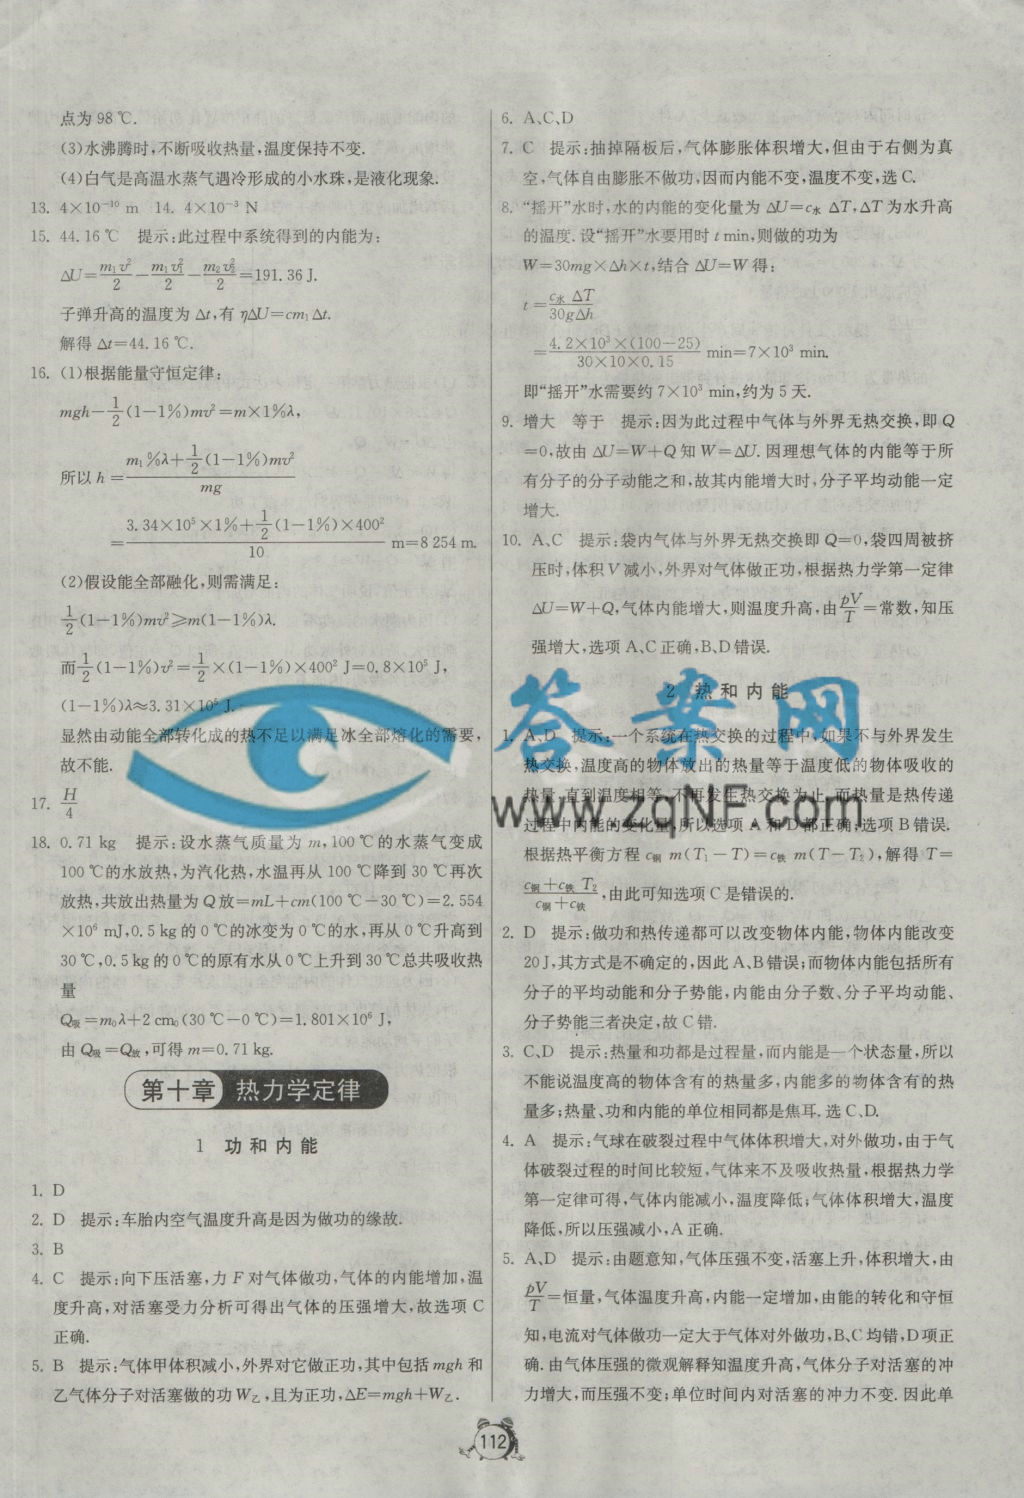 点为 98 ℃.
(3)水沸腾时,不断吸收热量,温度保持不变.
(4)白气是高温水蒸气遇冷形成的小水珠,是液化现象.
13. 4×10⁻¹⁰ m　14. 4×10⁻³ N
15. 44.16 ℃　提示:此过程中系统得到的内能为:
ΔU=m₁v²/2−m₁v₁²/2−m₂v₂²/2=191.36 J.
子弹升高的温度为 Δt,有 ηΔU=cm₁Δt.
解得 Δt=44.16 ℃.
16. (1)根据能量守恒定律:
mgh−1/2(1−1%)mv²=m×1%λ,
所以 h=(m₁%λ+1/2(1−1%)mv²)/mg
=(3.34×10⁵×1%+1/2(1−1%)×400²)/10 m=8 254 m.
(2)假设能全部融化,则需满足:
1/2(1−1%)mv²⩾m(1−1%)λ.
而1/2(1−1%)v²=1/2×(1−1%)×400² J=0.8×10⁵ J,
(1−1%)λ≈3.31×10⁵ J.
显然由动能全部转化成的热不足以满足冰全部熔化的需要,
故不能.
17. H/4
18. 0.71 kg　提示:设水蒸气质量为 m,100 ℃的水蒸气变成
100 ℃的水放热,为汽化热,水温再从 100 ℃降到 30 ℃再次
放热,共放出热量为 Q放=mL+cm(100 ℃−30 ℃)=2.554
×10⁶ mJ,0.5 kg 的 0 ℃的冰变为 0 ℃的水,再从 0 ℃升高到
30 ℃,0.5 kg 的 0 ℃的原有水从 0 ℃上升到 30 ℃总共吸收热
量
Q吸=m₀λ+2 cm₀(30 ℃−0 ℃)=1.801×10⁶ J,
由 Q吸=Q放,可得 m=0.71 kg.
第十章 热力学定律
1　功和内能
1. D
2. D　提示:车胎内空气温度升高是因为做功的缘故.
3. B
4. C　提示:向下压活塞,力 F 对气体做功,气体的内能增加,温
度升高,对活塞受力分析可得出气体的压强增大,故选项 C
正确.
5. B　提示:气体甲体积减小,外界对它做正功,其中包括 mgh 和
乙气体分子对活塞做的功 W乙,且为正功,ΔE=mgh+W乙.
6. A、C、D
7. C　提示:抽掉隔板后,气体膨胀体积增大,但由于右侧为真
空,气体自由膨胀不做功,因而内能不变,温度不变,选 C.
8. “摇开”水时,水的内能的变化量为 ΔU=c水 ΔT,ΔT 为水升高
的温度.设“摇开”水要用时 t min,则做的功为
W=30mg×Δh×t,结合 ΔU=W 得:
t=c水 ΔT/30gΔh
=4.2×10³×(100−25)/30×10×0.15 min=7×10³ min.
即“摇开”水需要约 7×10³ min,约为 5 天.
9. 增大　等于　提示:因为此过程中气体与外界无热交换,即 Q
=0,故由 ΔU=W+Q 知 W=ΔU.因理想气体的内能等于所
有分子的分子动能之和,故其内能增大时,分子平均动能一定
增大.
10. A、C　提示:袋内气体与外界无热交换即 Q=0,袋四周被挤
压时,体积 V 减小,外界对气体做正功,根据热力学第一定律
ΔU=W+Q,气体内能增大,则温度升高,由pV/T=常数,知压
强增大,选项 A、C 正确,B、D 错误.
2　热和内能
1. A、D　提示:一个系统在热交换的过程中,如果不与外界发生
热交换,温度高的物体放出的热量等于温度低的物体吸收的
热量,直到温度相等,不再发生热交换为止,而热量是热传递
过程中内能的变化量,所以选项 A 和 D 都正确,选项 B 错误.
根据热平衡方程 c铜 m(T₁−T)=c铁 m(T−T₂),解得 T=
c铜+c铁 T₂/c铜+c铁,由此可知选项 C 是错误的.
2. D　提示:做功和热传递都可以改变物体内能,物体内能改变
20 J,其方式是不确定的,因此 A、B 错误;而物体内能包括所有
分子的平均动能和分子势能,内能由分子数、分子平均动能、
分子势能三者决定,故 C 错.
3. C、D　提示:热量和功都是过程量,而内能是一个状态量,所以
不能说温度高的物体含有的热量多,内能多的物体含有的热
量多;热量、功和内能的单位相同都是焦耳.选 C、D.
4. A　提示:气球在破裂过程中气体体积增大,对外做功,由于气
体破裂过程的时间比较短,气体来不及吸收热量,根据热力学
第一定律可得,气体内能减小,温度降低;气体体积增大,温度
降低,所以压强减小,A 正确.
5. A、D　提示:由题意知,气体压强不变,活塞上升,体积增大,由
pV/T=恒量,气体温度升高,内能一定增加,由能的转化和守恒
知,电流对气体做功一定大于气体对外做功,B、C 均错,D 项正
确.由气体压强的微观解释知温度升高,气体分子对活塞的冲
力增大,而压强不变;单位时间内对活塞的冲力不变.因此单
112
答案网
www.zqNF.com